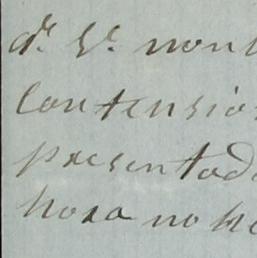 dr. Sr. non
contension
presentad
hora no he